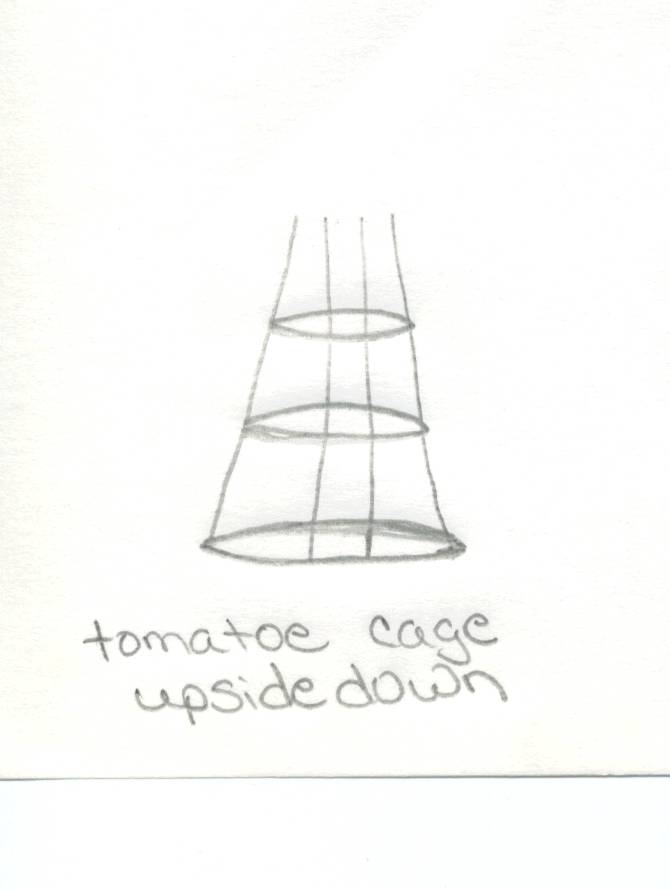 tomatoe cage
upside down